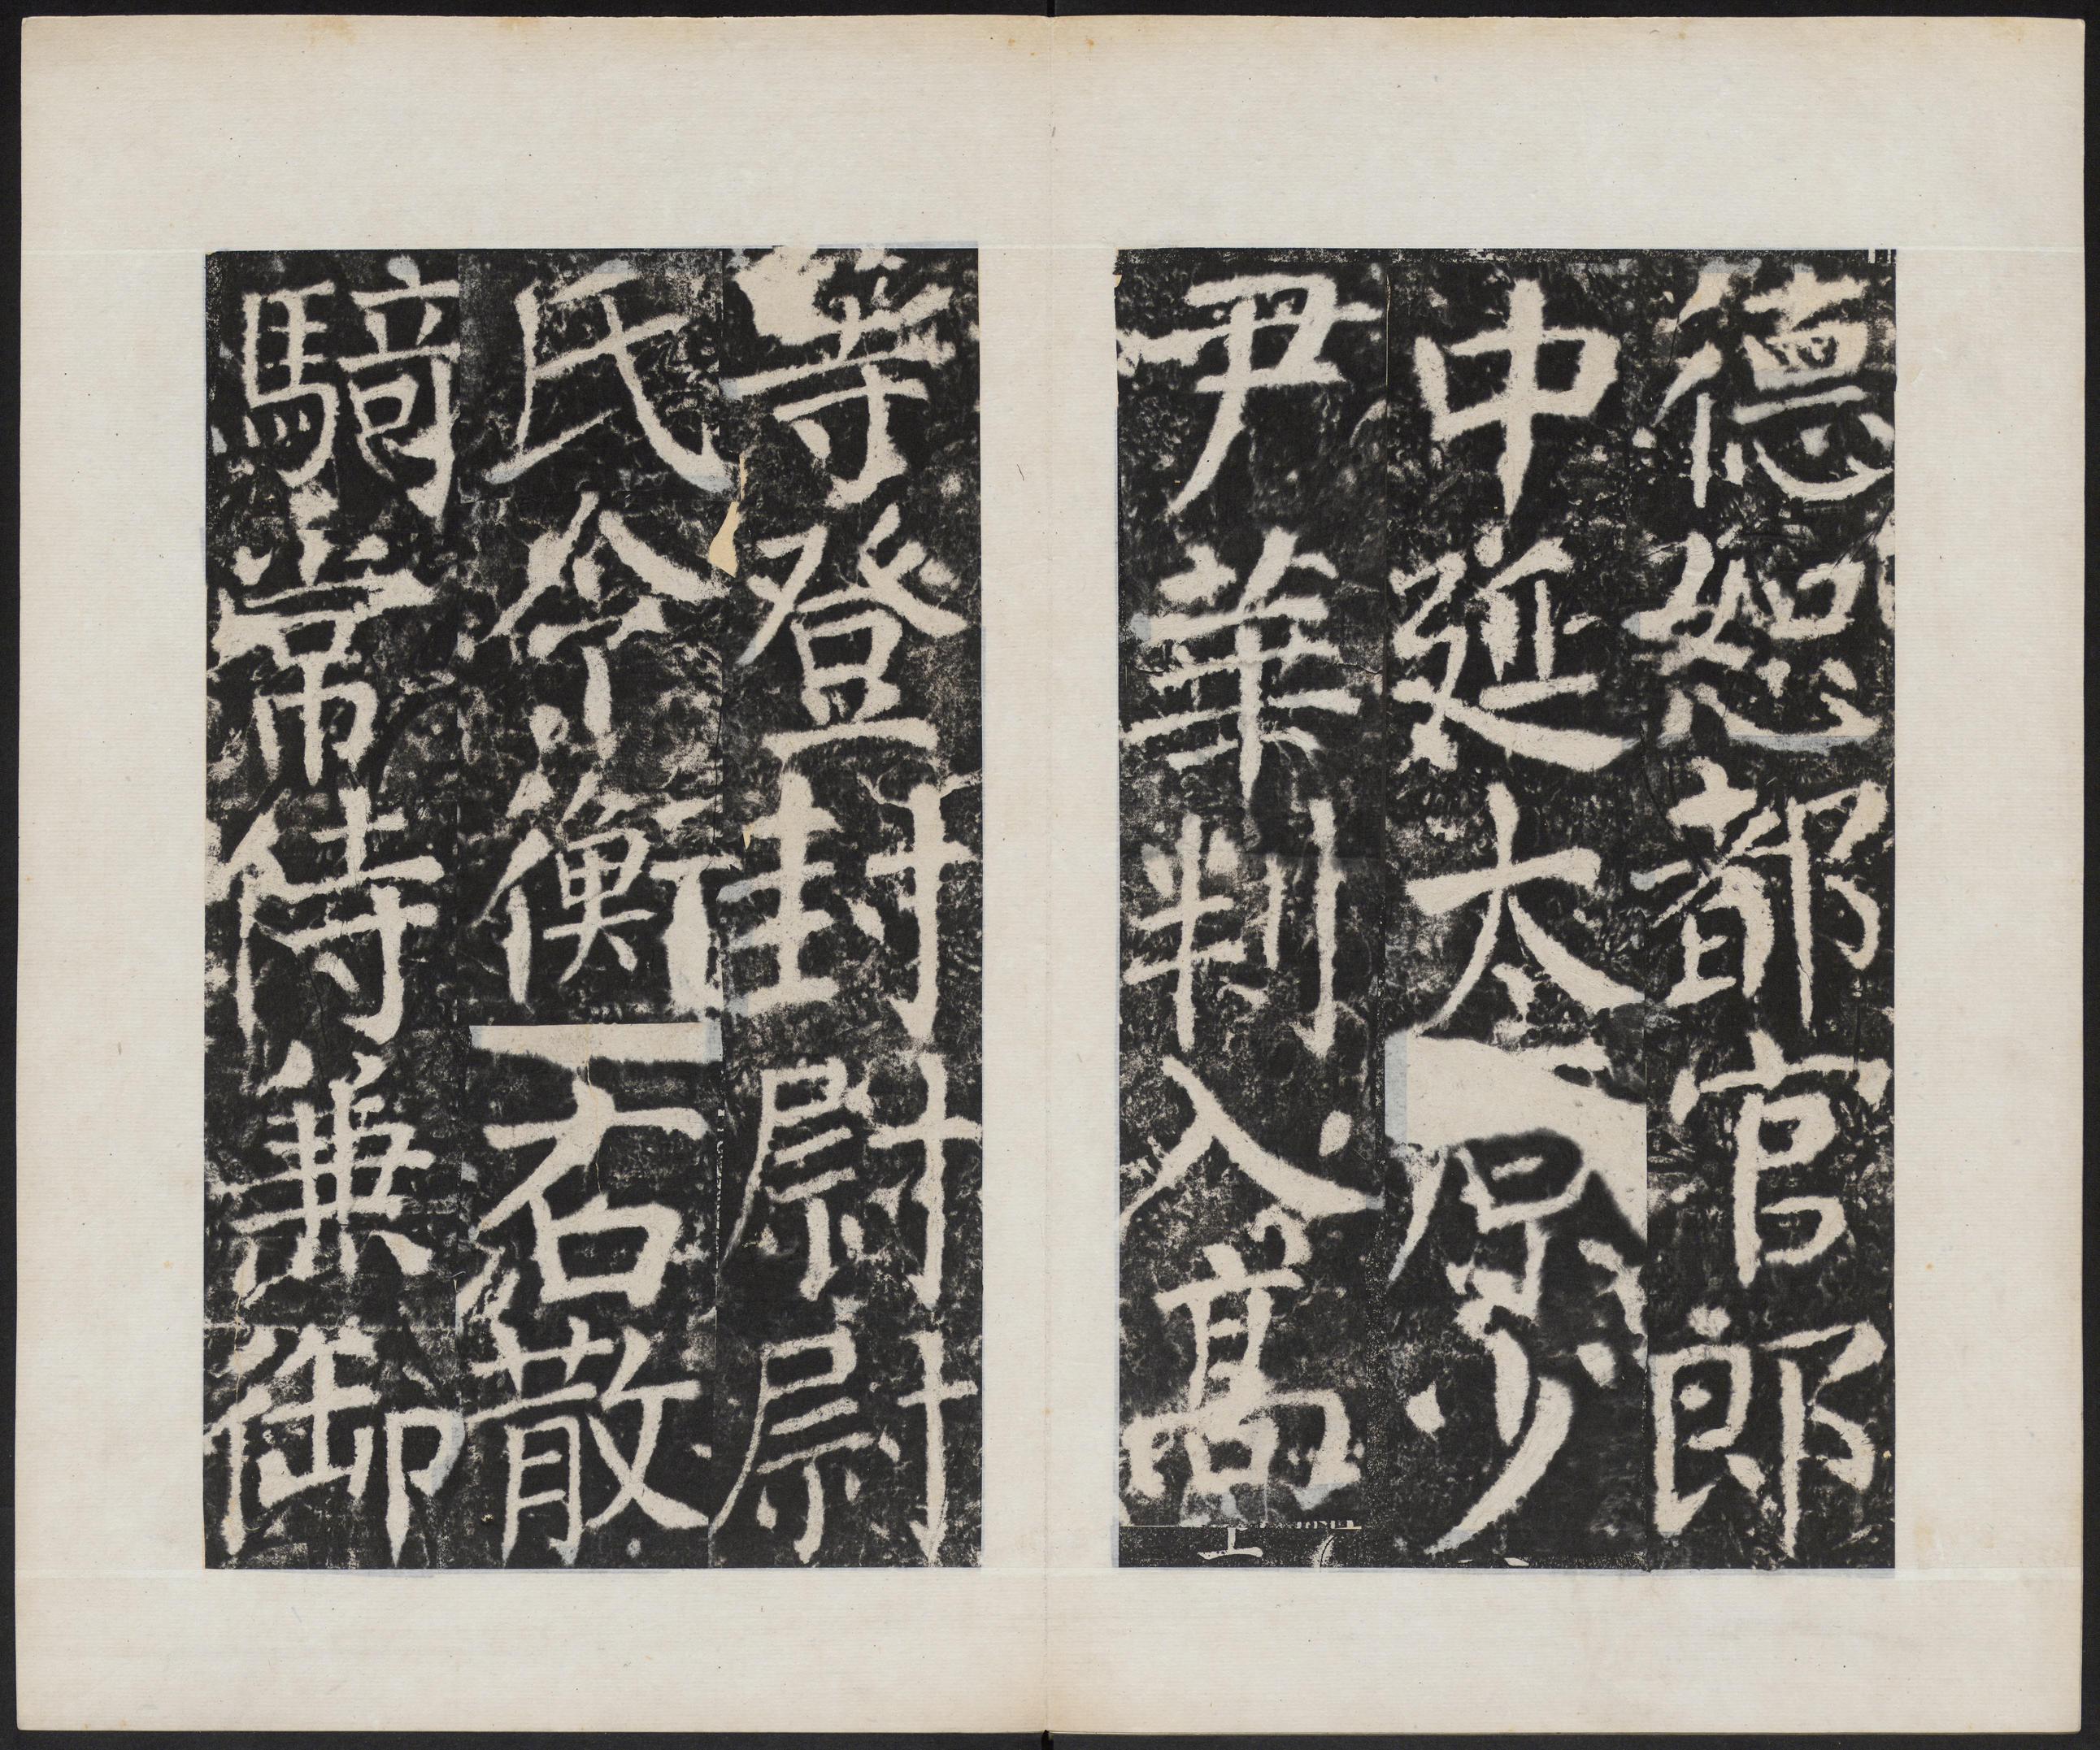 德恕都官郎
中延太原少
尹華判入高
等登封尉尉
氏令衡右散
騎常侍兼御